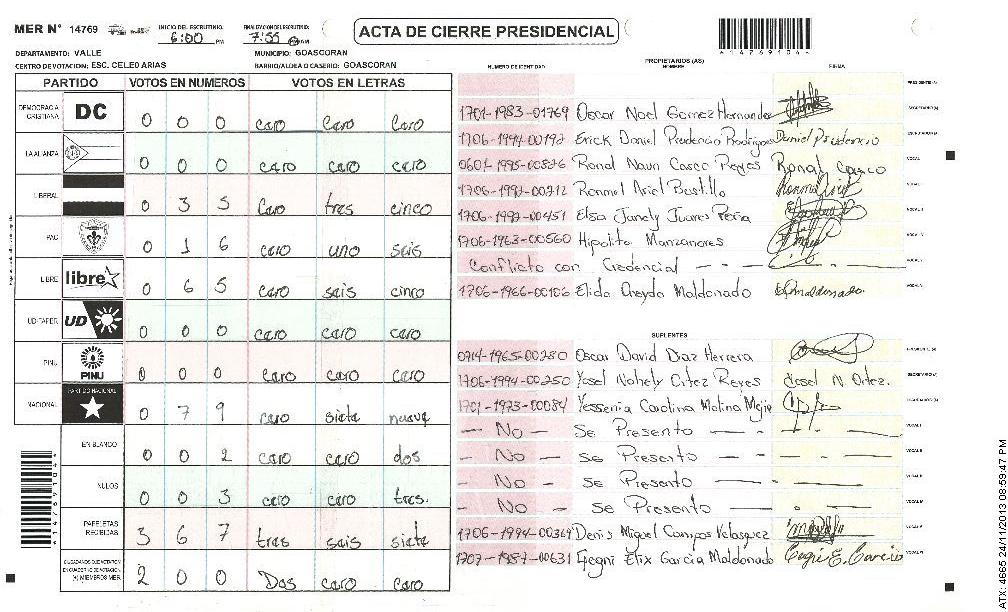 MER Nº 14769 INICIO DEL ESCRUTINIO: 6:00 PM FINALIZACION DEL ESCRUTINIO: 7:55 PM
ACTA DE CIERRE PRESIDENCIAL
DEPARTAMENTO: VALLE MUNICIPIO: GOASCORAN
CENTRO DE VOTACION: ESC. CELEO ARIAS BARRIO/ALDEA O CASERIO: GOASCORAN
PARTIDO VOTOS EN NUMEROS VOTOS EN LETRAS
DEMOCRACIA CRISTIANA DC 0 0 0 cero cero cero
LA ALIANZA 0 0 0 cero cero cero
LIBERAL 0 3 5 Cero tres cinco
PAC 0 1 6 cero uno seis
LIBRE libre 0 6 5 cero seis cinco
UD-FAPER UD 0 0 0 cero cero cero
PINU PINU 0 0 0 cero cero cero
NACIONAL PARTIDO NACIONAL 0 7 9 cero siete nueve
EN BLANCO 0 0 2 cero cero dos
NULOS 0 0 3 cero cero tres.
PAPELETAS RECIBIDAS 3 6 7 tres seis siete
CIUDADANOS QUE VOTARON EN CUADERNO DE VOTACION (+) MIEMBROS MER 2 0 0 Dos cero cero
NUMERO DE IDENTIDAD PROPIETARIOS (AS) NOMBRE FIRMA
PRESIDENTE (A)
1701-1983-01769 Oscar Noel Gomez Hernandez SECRETARIO (A)
1706-1994-00192 Erick Daniel Prudencio Rodriguez Daniel Prudencio ESCRUTADOR (A)
0601-1995-00826 Ronal Naun Casco Reyes Ronal Casco VOCAL I
1706-1992-00212 Ronmel Ariel Bustillo
1706-1992-00451 Elsa Janely Juares Peña
1706-1963-00560 Hipolito Manzanares
Conflicto con Credencial
1706-1966-00106 Elida Oneyda Maldonado
SUPLENTES
0914-1965-00280 Oscar David Diaz Herrera PRESIDENTE (A)
1706-1994-00250 Yosel Nohely Ortez Reyes Yosel N. Ortez. SECRETARIO (A)
1701-1973-00084 Yessenia Carolina Molina Mejia ESCRUTADOR (A)
- No - se Presento
- No - se Presento
- No - se Presento
- No - se Presento
1706-1994-00369 Denis Miguel Campos Velasquez
1707-1987-00631 Elix Garcia Maldonado
ATX: 4665 24/11/2013 08:59:47 PM